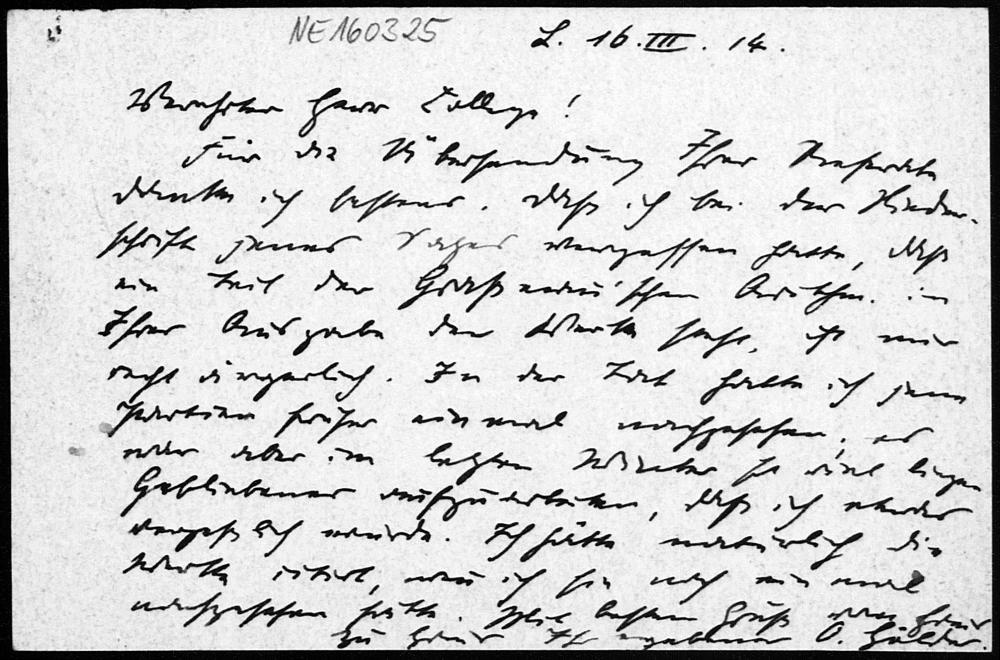 NE160325
L. 16.III.14.
Verehrter Herr College!
Für die Übersendung Ihrer Separata
danke ich bestens. Daß ich bei der Nieder-
schrift jenes Satzes vergessen hatte, daß
ein Teil der Graßmann'schen Arithm. in
Ihrer Ausgabe der Werke steht, ist mir
recht ärgerlich. In der Tat hatte ich jene
Partien früher einmal nachgesehen; es
war aber im letzten Winter so viel liegen
Gebliebenes aufzuarbeiten, daß ich etwas
vergeßlich wurde. Ich hätte natürlich die
Werke citiert, wenn ich sie noch einmal
nachgesehen hätte. Mit bestem Gruß von Haus
zu Haus Ihr ergebener O. Hölder.